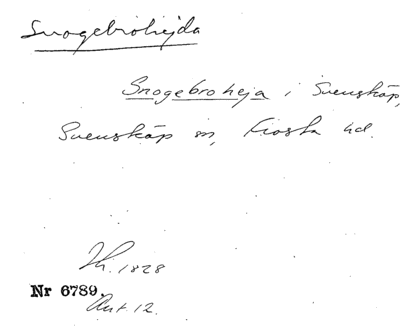 Snogebrohejda
Snogebroheja i Svenskåp,
Svenskåp sn, Frosta hd.
Lh. 1828
Nr 6789
Akt 12.